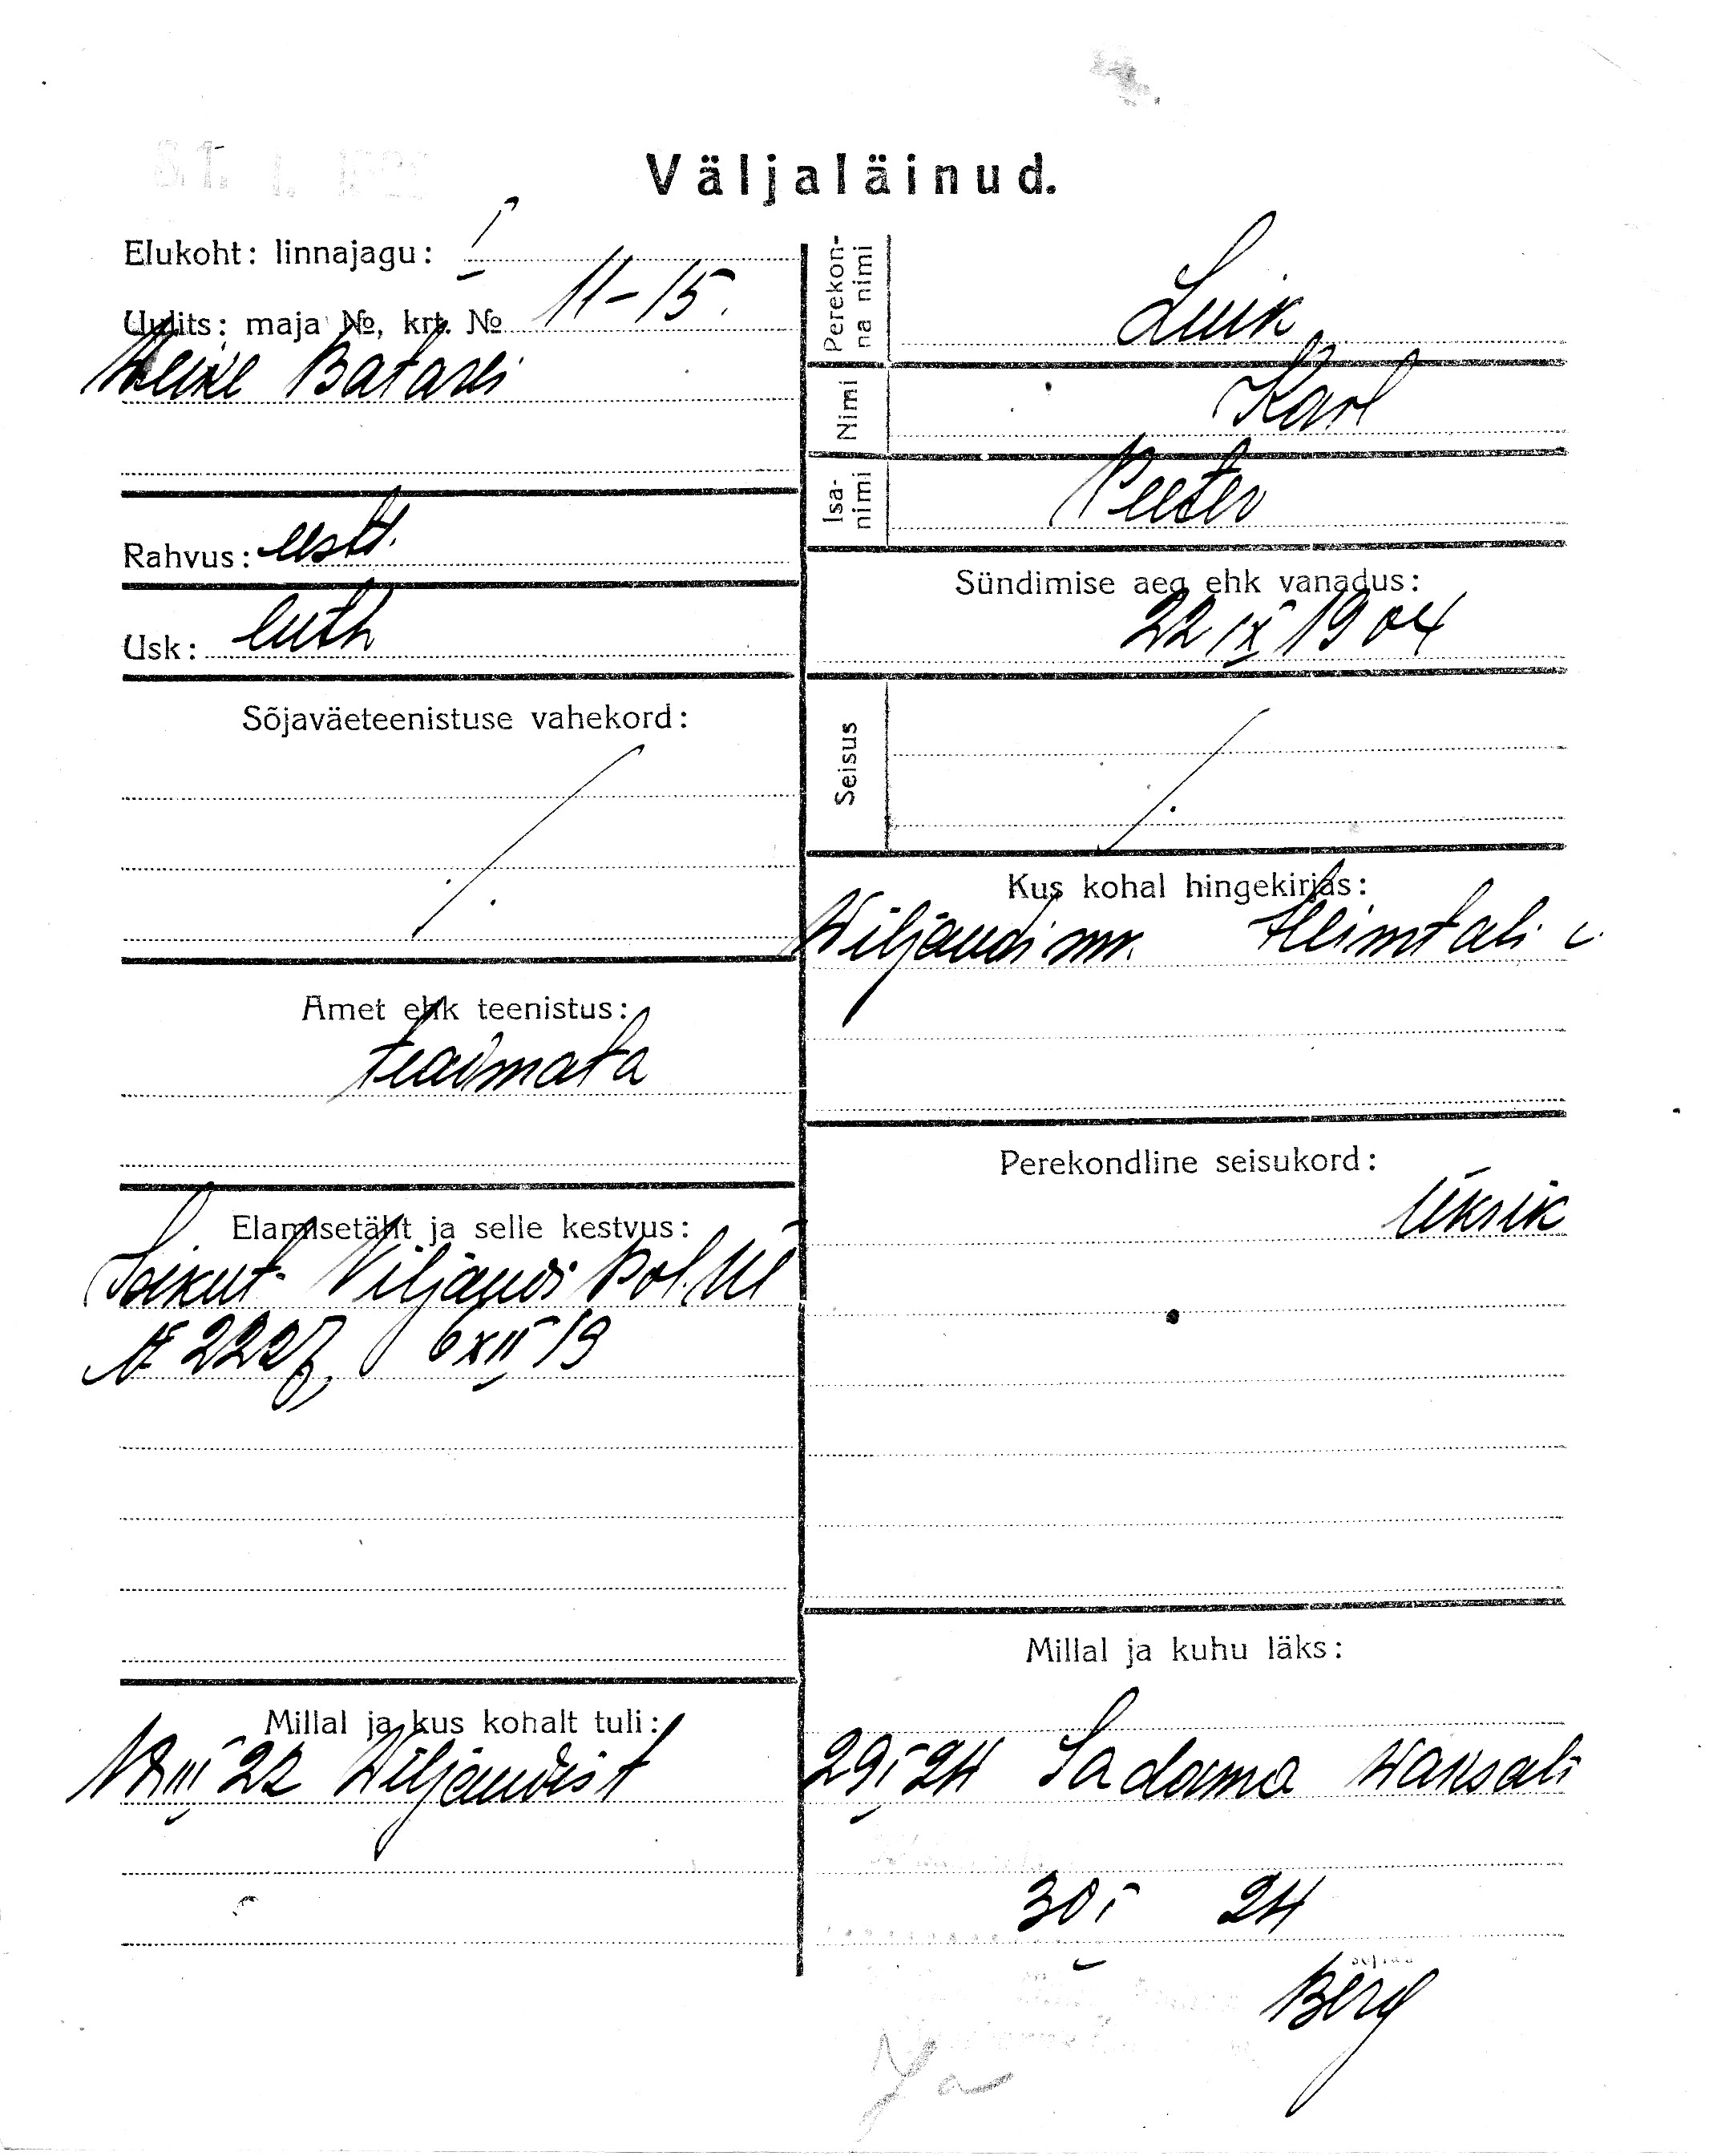 Väljaläinud.
Elukoht: linnajagu: I
Uulits: maja №, krt. № 11-15.
Weike Batarei
Rahvus: eestl.
Usk: luth
Sõjaväeteenistuse vahekord:
Amet ehk teenistus:
teadmata
Elamisetäht ja selle kestvus:
Isikut. Viljandi Pol.
№ 2227, 6 XII 19
Millal ja kus kohalt tuli:
III 22 Wiljandist
Perekon-
na nimi
Luik
Nimi
Karl
Isa-
nimi
Peeter
Sündimise aeg ehk vanadus:
22 IX 1904
Seisus
Kus kohal hingekirjas:
Wiljandi mk. Heimtali v.
Perekondline seisukord:
üksik
Millal ja kuhu läks:
29 I 24 Sadama waksali
30 I 24
Berg